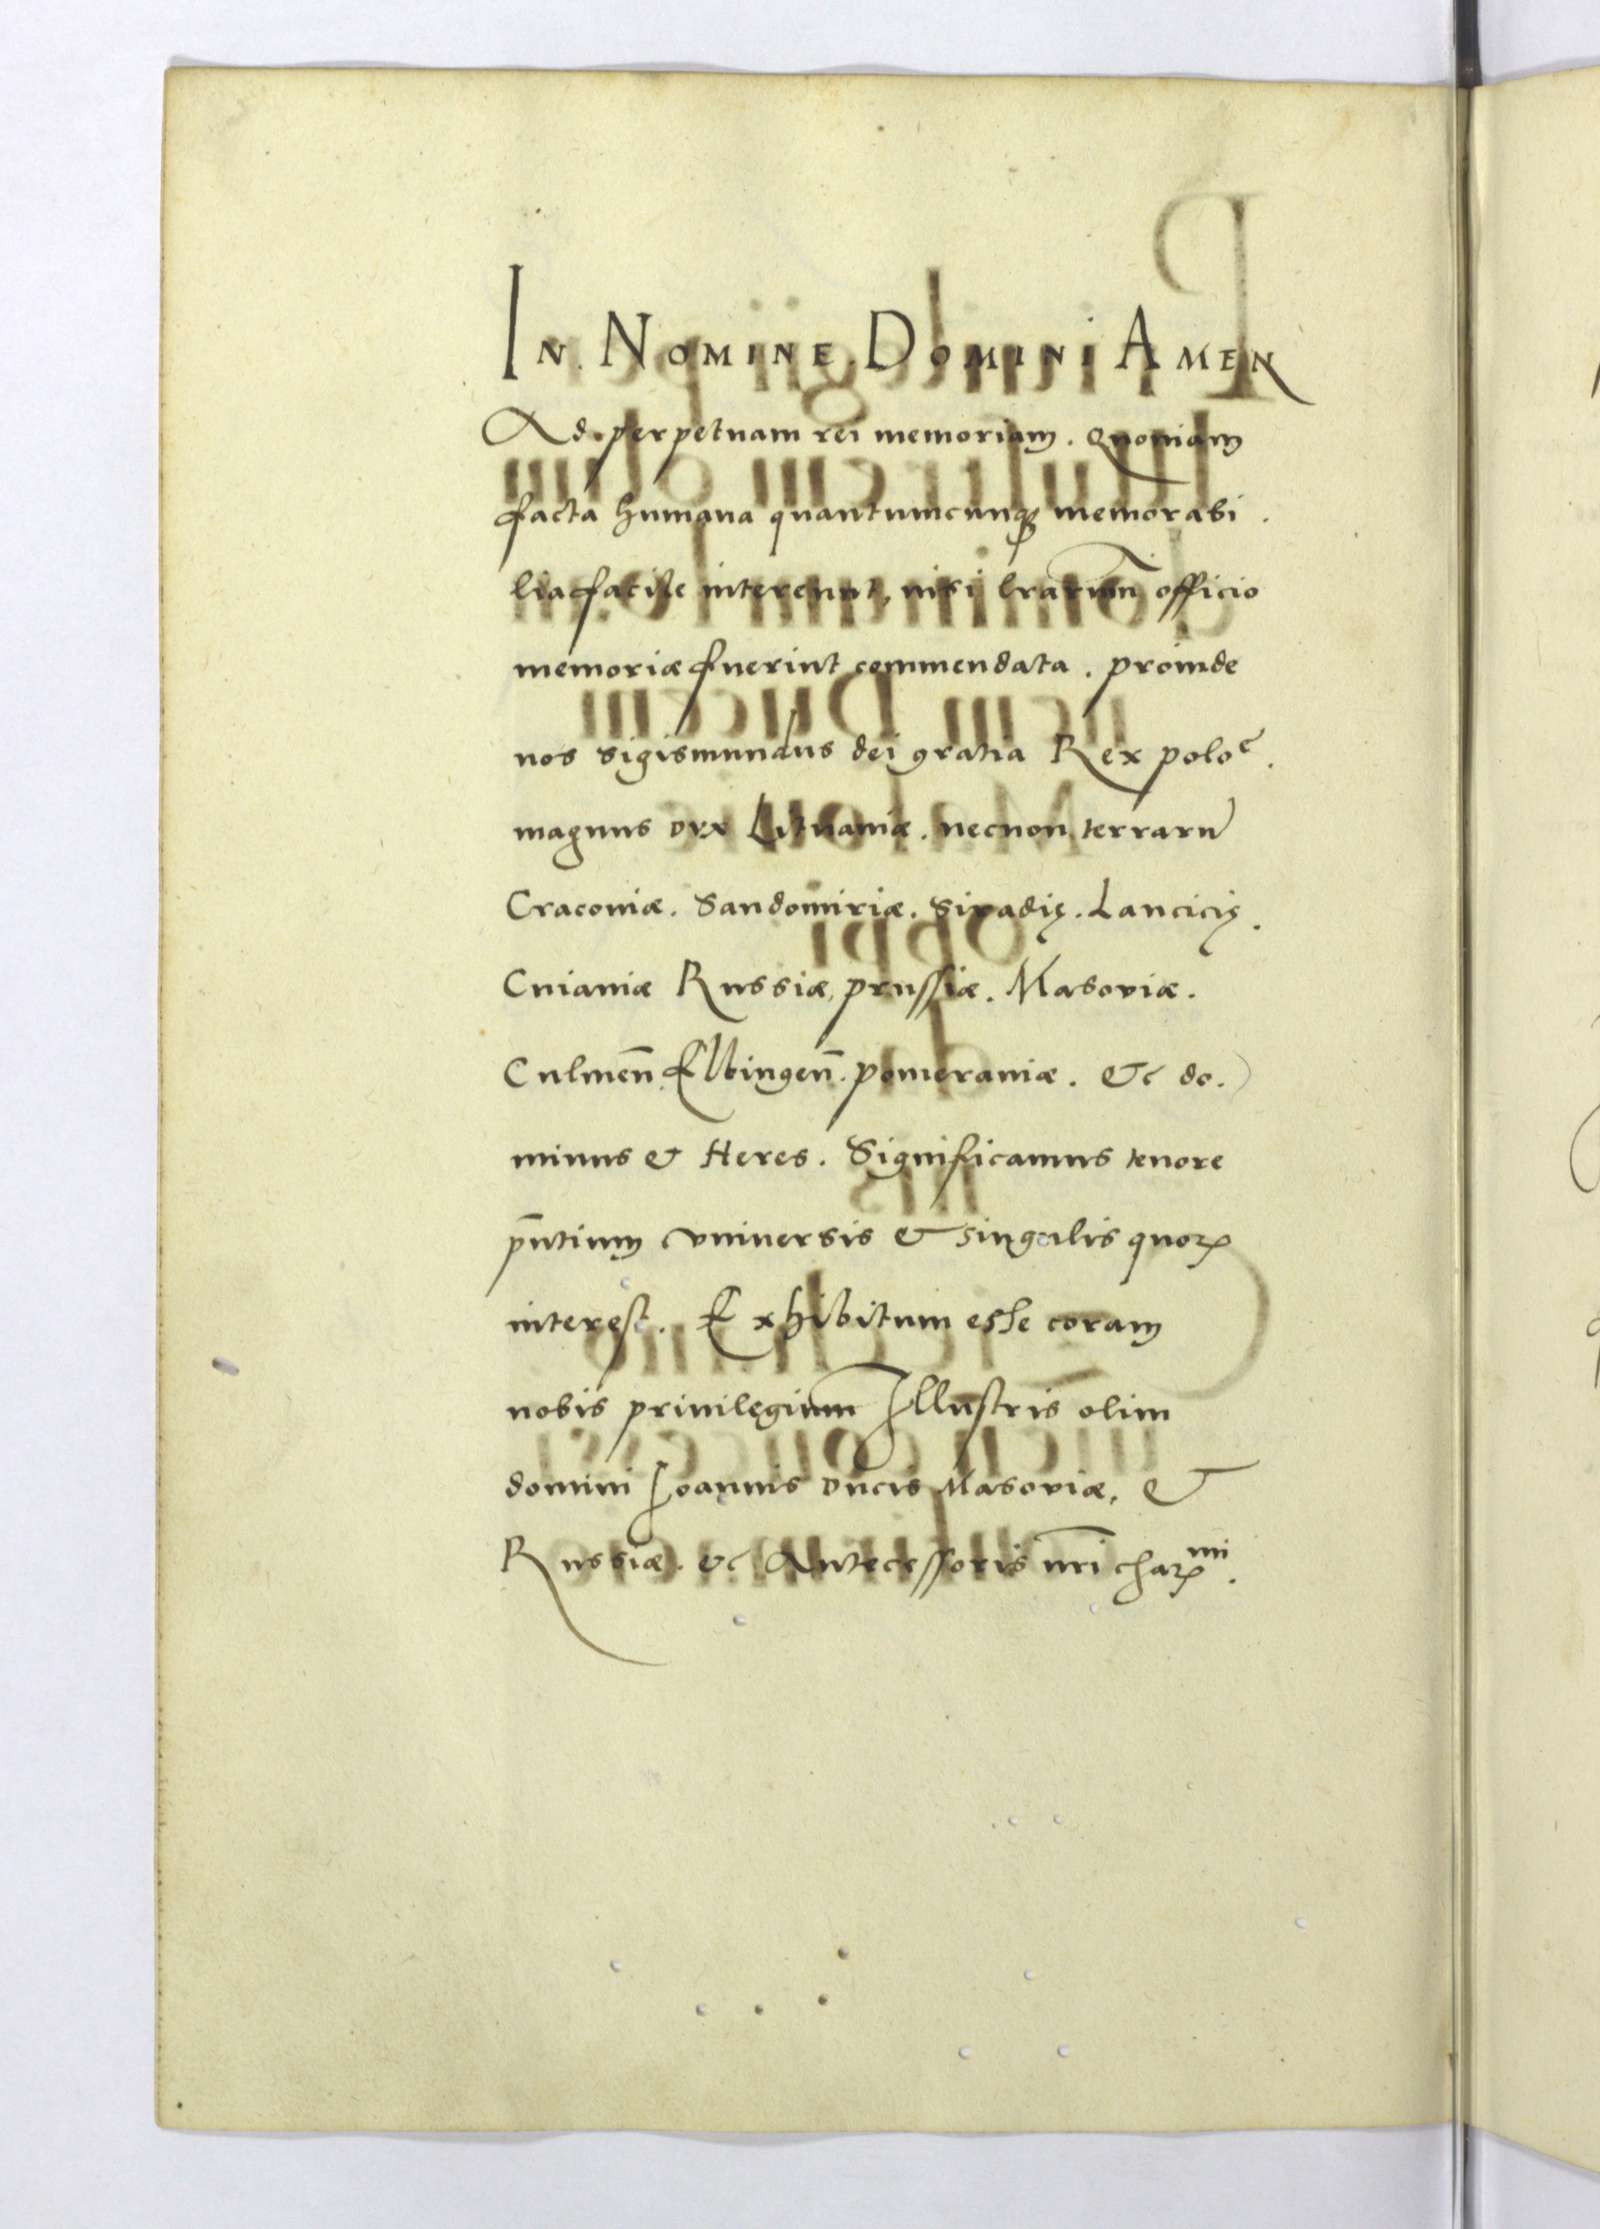 In. Nomine. Domini Amen
Ad. perpetuam rei memoriam. Quoniam
facta humana quantumcunqꝫ memorabi.
lia facile intereunt, nisi lrarum̄ officio
memoriæ fuerint commendata. proinde
nos Sigismundus dei gratia Rex polo͡e.
magnus Dux Lituaniæ. necnon terrarū
Cracoviæ. Sandomiriæ. Siradię. Lancicię.
Cuiaviæ Russiæ, prussiæ. Masoviæ.
Culmen̄ Elbingen̄. pomeraniæ. &c do.
minus & Heres. Significamus tenore
p̄ntium universis & singulis quoꝝ
interest. Exhibitum esse coram
nobis privilegium Illustris olim
domini Joannis Ducis Masoviæ, &
Russiæ. &c Antecessoris nr̄i chaꝝmi.